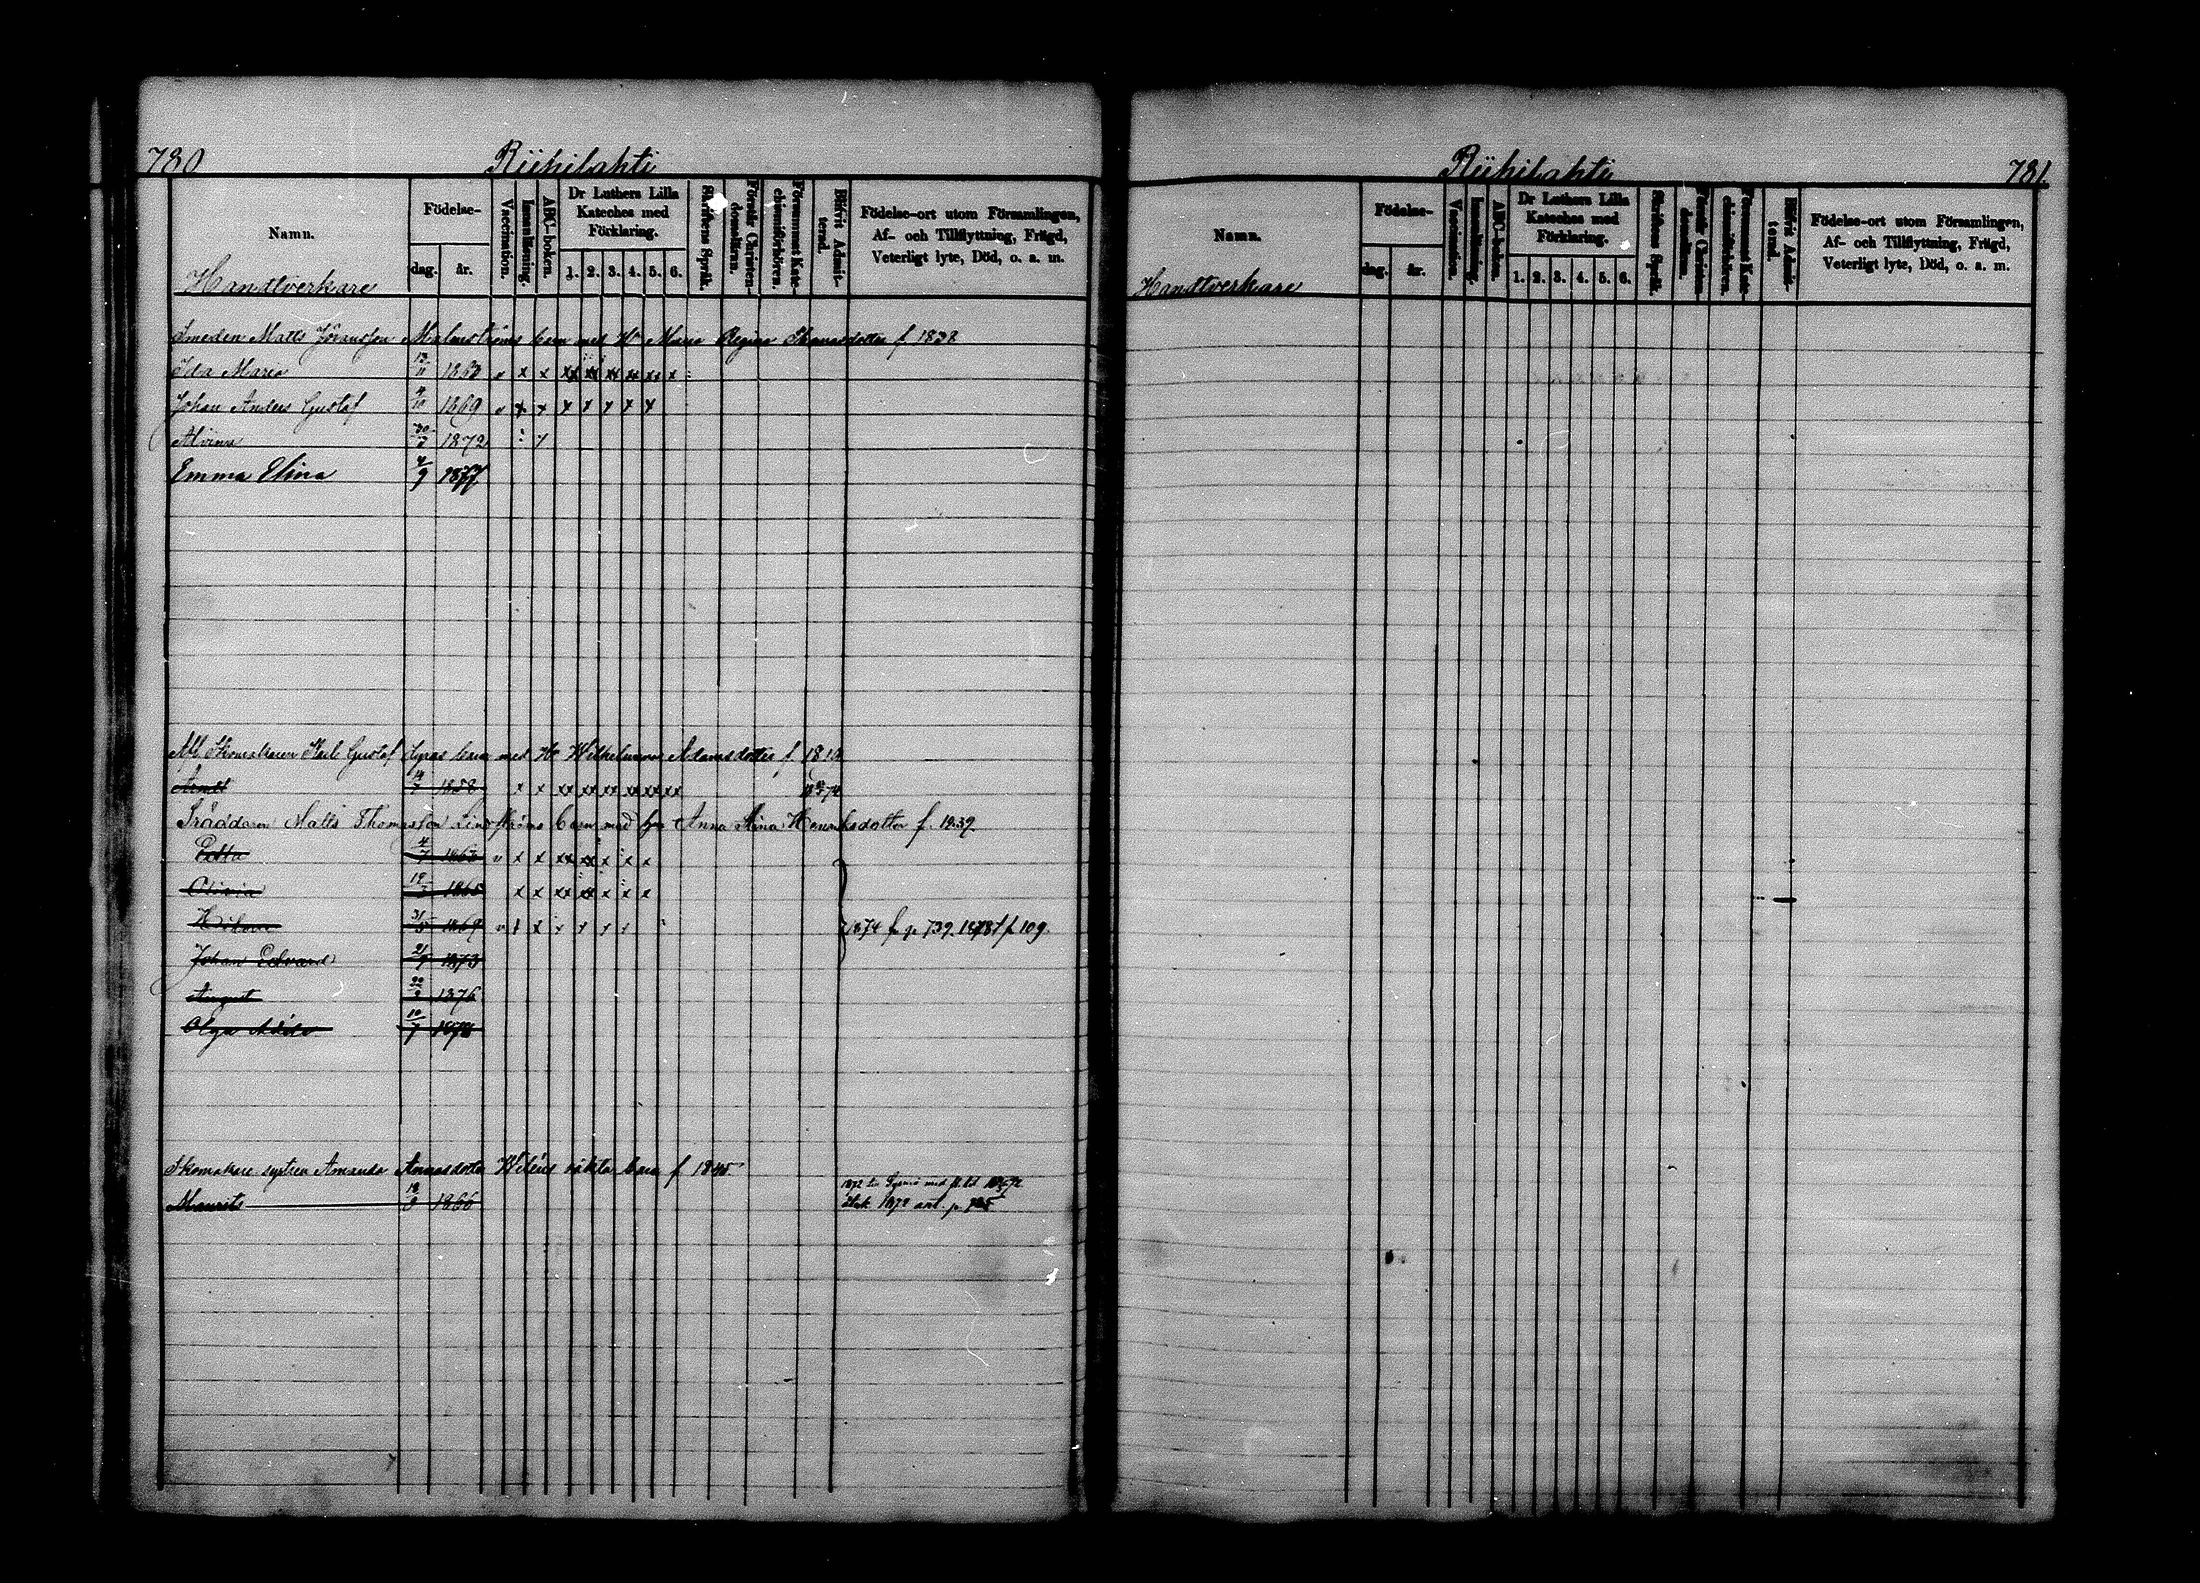 780 Riihilahti
Namn. Födelse- dag. år. Vaccination. Innanläsning. ABC-boken. Dr Luthers Lilla Kateches med Förklaring. 1. 2. 3. 4. 5. 6. Skriftens Språk. Förstår Christendomsläran. Försummat Katechismiförhören. Blifvit Admitterad. Födelse-ort utom Församlingen, Af- och Tillflyttning, Frägd, Veterligt lyte, Död, o. a. m.
Handtverkare
Smeden Matts Göransson Malmströms barn med Hu Maria Regina f 1838
Ida Maria 11 x x xx xx xx xx xx x
Johan Anders Gustaf 4/10 1869 x x x x x x x
Alvina 1872
Emma Elina 4/9 1877
Skomakaren Karl Gustaf barn med Hu Wilhelmina Adamsdotter f.
14/7 1858 x x xx xx xx xx xx xx
Skräddaren Matts Thomasson Lindströms barn med Hu Anna Stina Henriksdotter f. 1839
4/7 1863 x x xx xx x x x
Olivia 19 1865 x x xx xx x x x
Hilma 31/5 1869 1874 fr p. 739. 1878 t p 109.
Johan Edvard 21/9 1873
August 22 1876
Olga 10/7 1878
Skomakare Amanda Annasdotter oäkta barn f 1845
Maurits 18 1866 1872 1872 p.
Riihilahti 781
Namn. Födelse- dag. år. Vaccination. Innanläsning. ABC-boken. Dr Luthers Lilla Kateches med Förklaring. 1. 2. 3. 4. 5. 6. Skriftens Språk. Förstår Christendomsläran. Försummat Katechismiförhören. Blifvit Admitterad. Födelse-ort utom Församlingen, Af- och Tillflyttning, Frägd, Veterligt lyte, Död, o. a. m.
Handtverkare